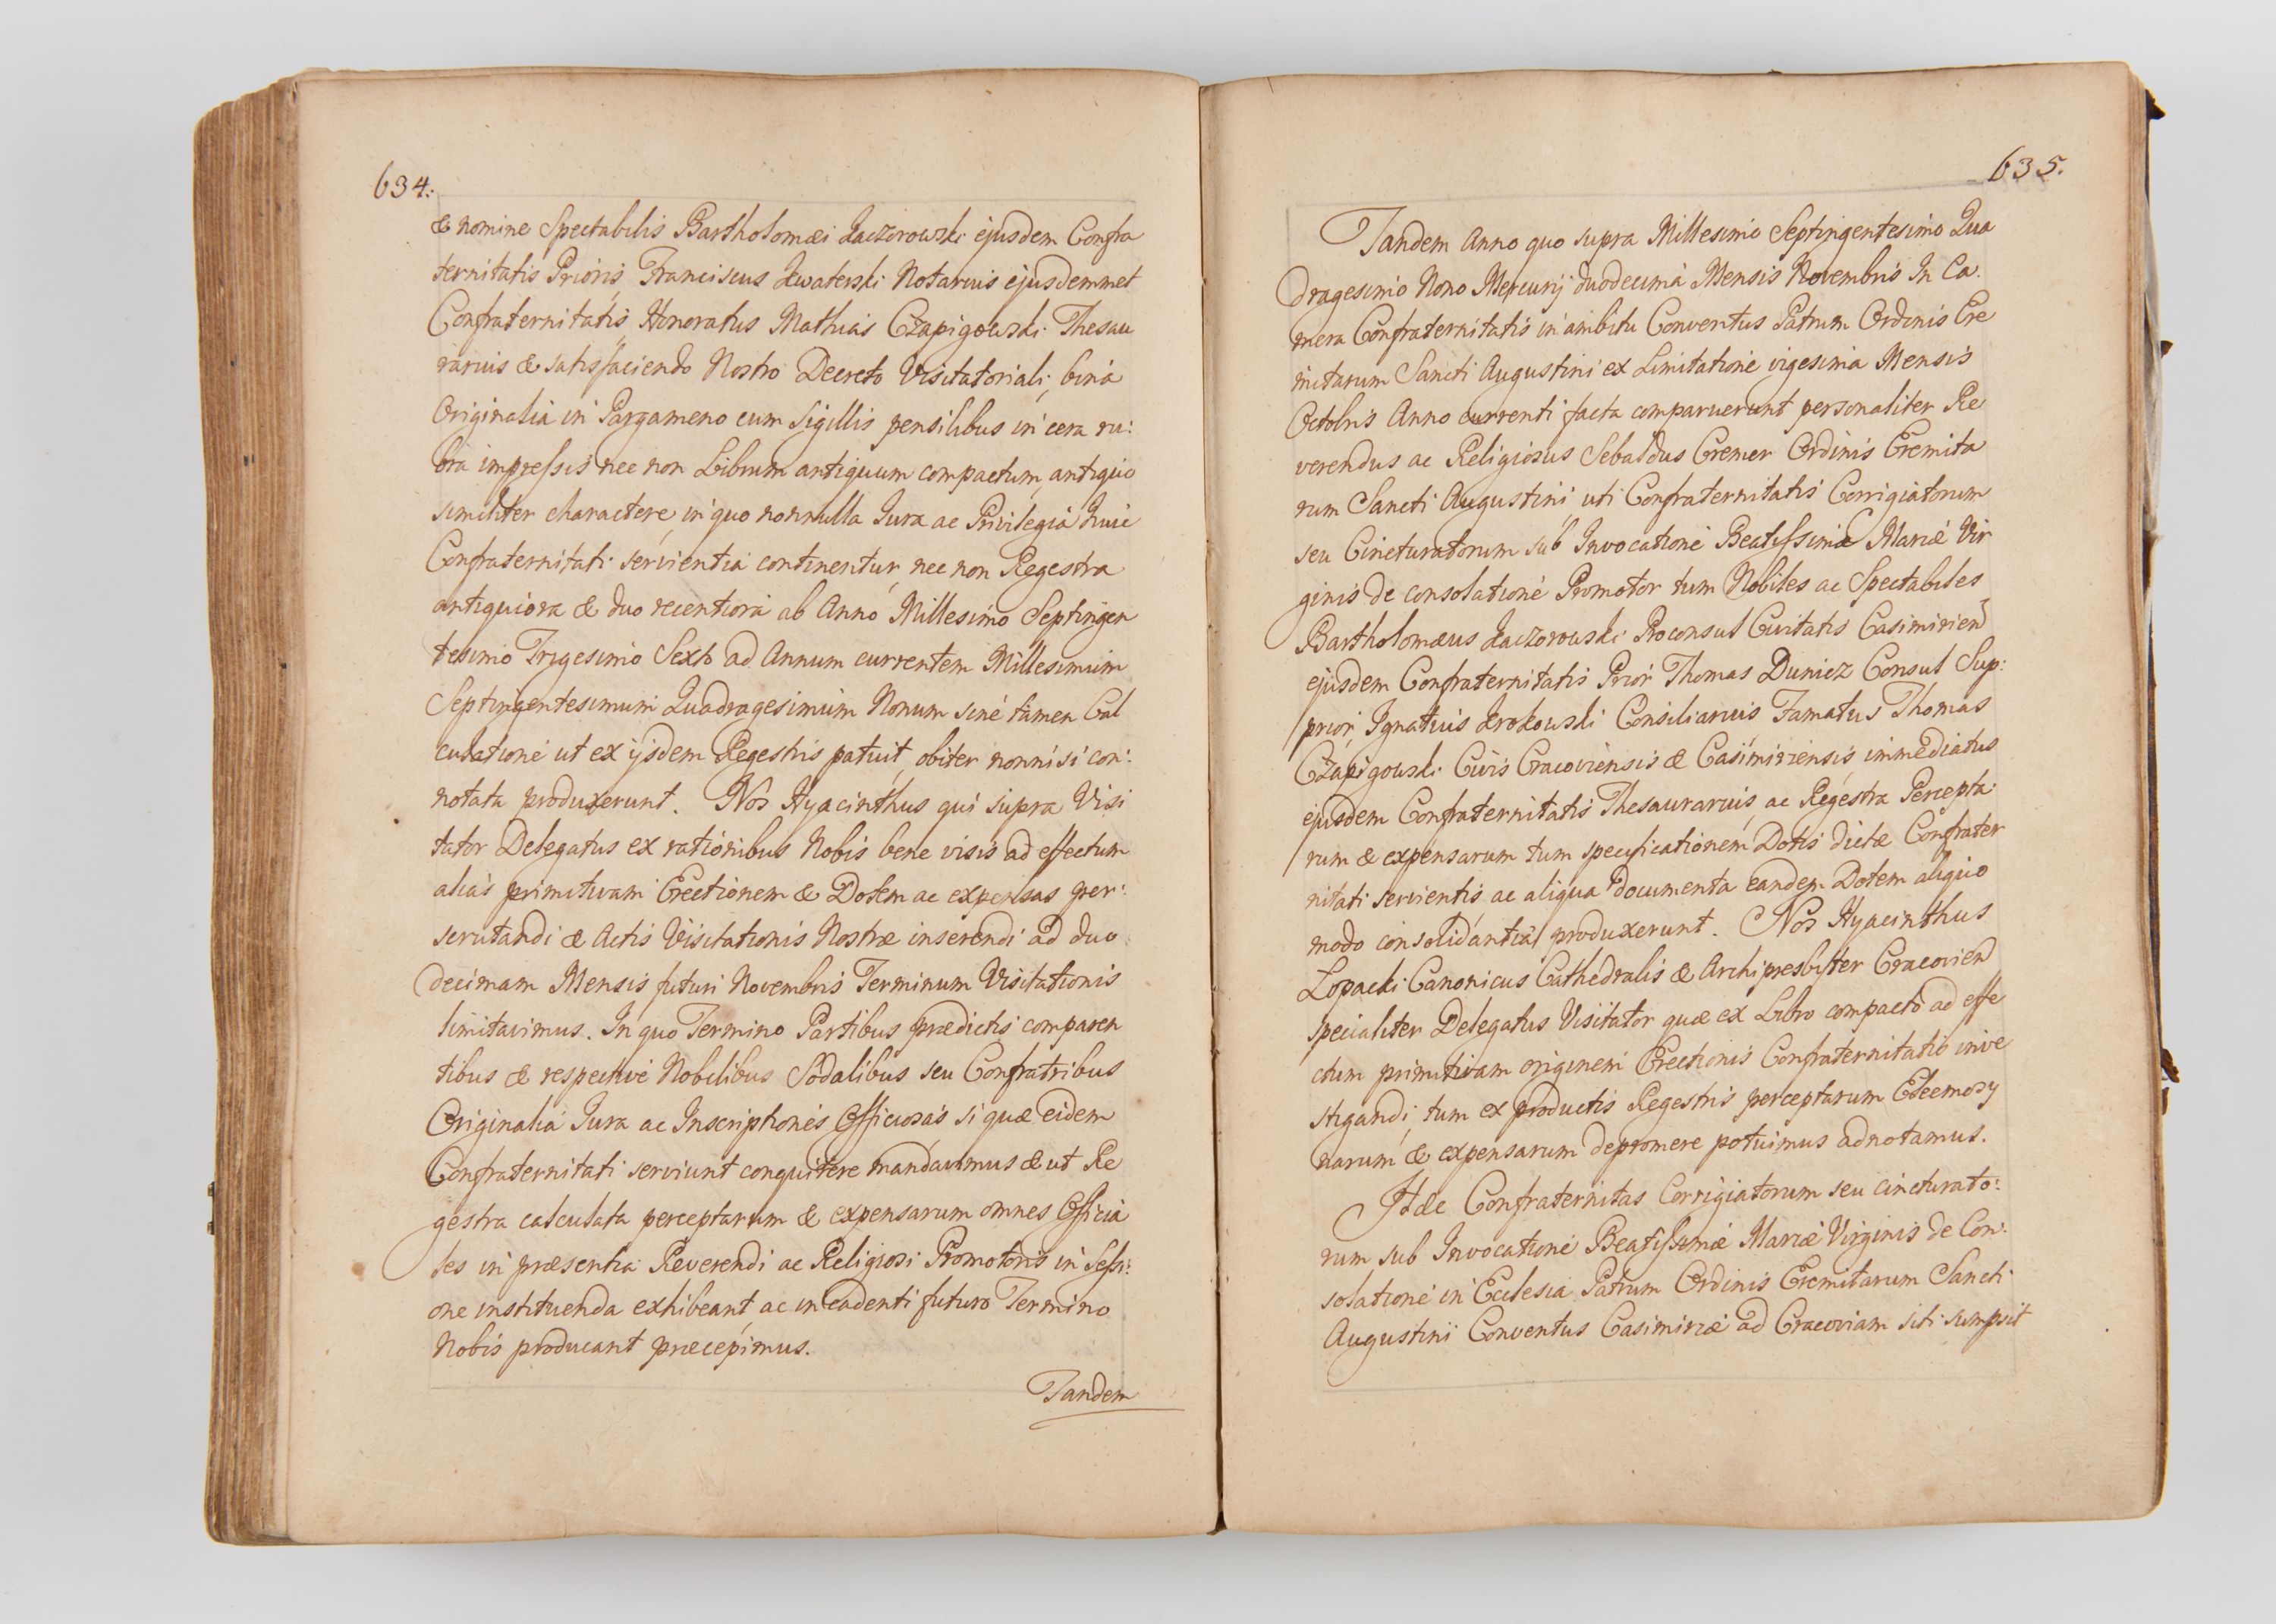 634.
& nomine Spectabilis Bartholomæi Kaczorowski ejusdem Confra
ternitatis Prioris, Franciscus Kwaterski Notarius ejusdemmet
Confraternitatis, Honoratus Mathias Czapigowski Thesau
rarius & satisfaciendo Nostro Decreto Visitatoriali, bina
Originalia in Pargameno cum Sigillis pensilibus in cera ru:
bra impressis nec non Librum antiquum compactum, antiquo
similiter charactere, in quo nonnulla Jura ac Privilegia huic
Confraternitati servientia continentur, nec non Regestra
antiquiora & duo recentiora ab Anno Millesimo Septingen
tesimo Trigesimo Sexto ad Annum currentem Millesimum
Septingentesimum Quadragesimum Nonum sine tamen Cal
culatione ut ex ijsdem Regestris patuit, obiter nonnisi con:
notata produxerunt. Nos Hyacinthus qui supra Visi
tator Delegatus ex rationibus Nobis bene visis ad effectum
alias primitivam Erectionem & Dotem ac expensas per:
scrutandi & Actis Visitationis Nostræ inserendi ad duo
decimam Mensis futuri Novembris Terminum Visitationis
limitavimus. In quo Termino Partibus prædictis comparen
tibus & respective Nobilibus Sodalibus seu Confratribus
Originalia Jura ac Inscriptiones Officiosas si quæ eidem
Confraternitati serviunt conquirere mandavimus & ut Re
gestra calculata perceptarum & expensarum omnes Officia
les in præsentia Reverendi ac Religiosi Promotoris in Sessi:
one instituenda exhibeant, ac in cadenti futuro Termino
Nobis producant præcepimus.
Tandem
635.
Tandem Anno quo supra Millesimo Septingentesimo Qua
dragesimo Nono Mercurij duodecima Mensis Novembris In Ca.
mera Confraternitatis in ambitu Conventus Patrum Ordinis Ere
mitarum Sancti Augustini ex Limitatione vigesima Mensis
Octobris Anno currenti facta comparuerunt personaliter Re
verendus ac Religiosus Sebaldus Cremer Ordinis Eremita
rum Sancti Augustini, uti Confraternitatis Corrigiatorum
seu Cincturatorum sub Invocatione Beatissimæ Mariæ Vir
ginis de consolatione Promotor tum Nobiles ac Spectabiles
Bartholomæus Kaczorowski Proconsul Civitatis Casimirien
ejusdem Confraternitatis Prior Thomas Dunicz Consul Sup:
prior, Ignatius Krokowski Consiliarius Famatus Thomas
Czapigowski Civis Cracoviensis & Casimiriensis, immediatus
ejusdem Confraternitatis Thesaurarius, ac Regestra Percepta
rum & expensarum tum specificationem Dotis dictæ Confrater
nitati servientis ac aliqua documenta eandem Dotem aliquo
modo consolidantia produxerunt. Nos Hyacinthus
Łopacki Canonicus Cathedralis & Archipresbyter Cracovien
specialiter Delegatus Visitator quæ ex Libro compacto ad effe
ctum primitivam originem Erectionis Confraternitatis inve
stigandi, tum ex productis Regestris perceptarum Eleemosy
narum & expensarum depromere potuimus adnotamus.
Itáe Confraternitas Corrigiatorum seu cincturato:
rum sub Invocatione Beatissimæ Mariæ Virginis de Con:
solatione in Ecclesia Patrum Ordinis Eremitarum Sancti
Augustini Conventus Casimiriæ ad Cracoviam siti sumpsit